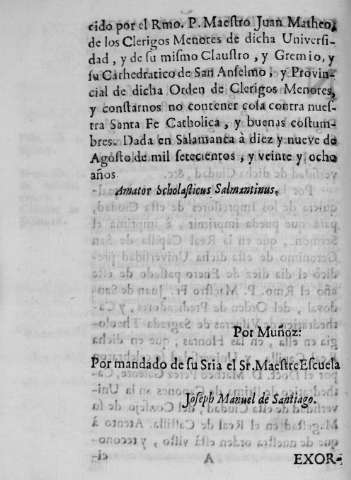 cido por el Rmo. P. Maestro Juan Matheo,
de los Clerigos Menores de dicha Universi-
dad, y de su mismo Claustro, y Gremio, y
su Cathedratico de San Anselmo, y Provin-
cial de dicha Orden de Clerigos Menores,
y constarnos no contener cosa contra nues-
tra Santa Fe Catholica, y buenas costum-
bres. Dada en Salamanca à diez y nueve de
Agosto de mil setecientos, y veinte y ocho
años
Amator Scholasticus Salmantinus.
Por Muñoz:
Por mandado de su Sria el Sr. Maestre Escuela
Joseph Manuel de Santiago.
EXOR-